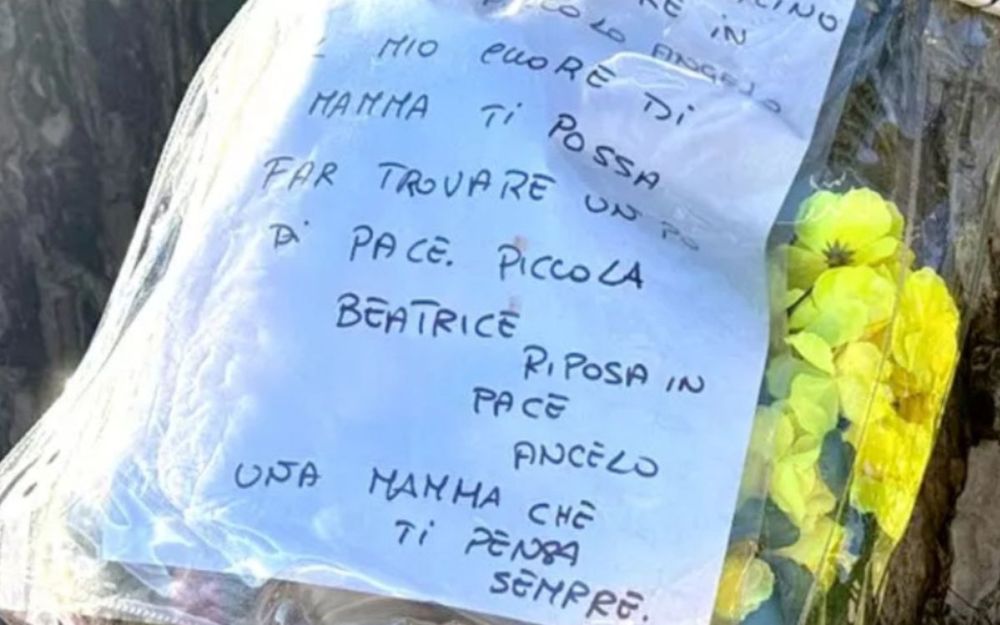 RE IN
LO ANGELO
MIO CUORE DI
MAMMA TI POSSA
FAR TROVARE UN PO
DI PACE. PICCOLA
BEATRICE
RIPOSA IN
PACE
ANGELO
UNA MAMMA CHE
TI PENSA
SEMPRE.